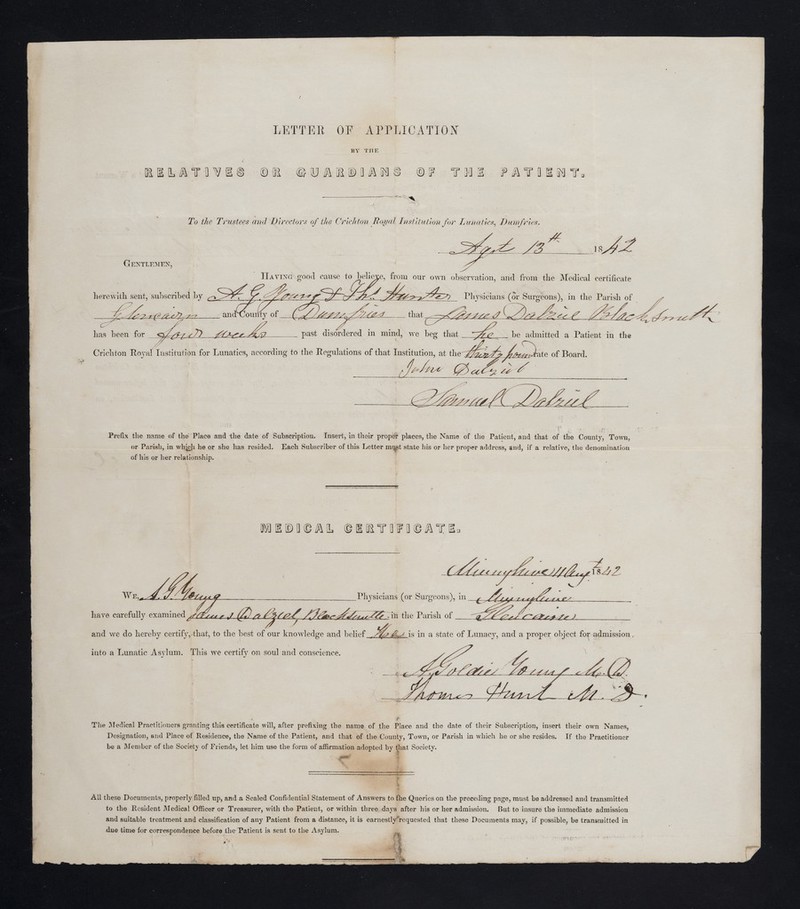 LETTER OF APPLICATION
BY THE
RELATIVES OR GUARDIANS OF THE PATIENT.
To the Trustees and Directors of the Crichton Royal Institution for Lunatics, Dumfries.
Agst 13th 1842
GENTLEMEN,
HAVING good cause to believe, from our own observation, and from the Medical certificate
herewith sent, subscribed by A. G. Young & Ths Hunter Physicians (or Surgeons), in the Parish of
Glencairn and County of Dumfries that James Dalziel Blacksmith
has been for four weeks past disordered in mind, we beg that he be admitted a Patient in the
Crichton Royal Institution for Lunatics, according to the Regulations of that Institution, at the thirty pound rate of Board.
John Dalziel
Samuel Dalziel
Prefix the name of the Place and the date of Subscription. Insert, in their proper places, the Name of the Patient, and that of the County, Town,
or Parish, in which he or she has resided. Each Subscriber of this Letter must state his or her proper address, and, if a relative, the denomination
of his or her relationship.
MEDICAL CERTIFICATE.
Minnyhive 11 Augt 1842
WE, A. G. Young Physicians (or Surgeons), in Minnyhive
have carefully examined James Dalziel, Blacksmith in the Parish of Glencairn
and we do hereby certify, that, to the best of our knowledge and belief is in a state of Lunacy, and a proper object for admission
into a Lunatic Asylum. This we certify on soul and conscience.
A Goldie Young M.D.
Thomas Hunt M.D.
The Medical Practitioners granting this certificate will, after prefixing the name of the Place and the date of their Subscription, insert their own Names,
Designation, and Place of Residence, the Name of the Patient, and that of the County, Town, or Parish in which he or she resides. If the Practitioner
be a Member of the Society of Friends, let him use the form of affirmation adopted by that Society.
All these Documents, properly filled up, and a Sealed Confidential Statement of Answers to the Queries on the preceding page, must be addressed and transmitted
to the Resident Medical Officer or Treasurer, with the Patient, or within three days after his or her admission. But to insure the immediate admission
and suitable treatment and classification of any Patient from a distance, it is earnestly requested that these Documents may, if possible, be transmitted in
due time for correspondence before the Patient is sent to the Asylum.